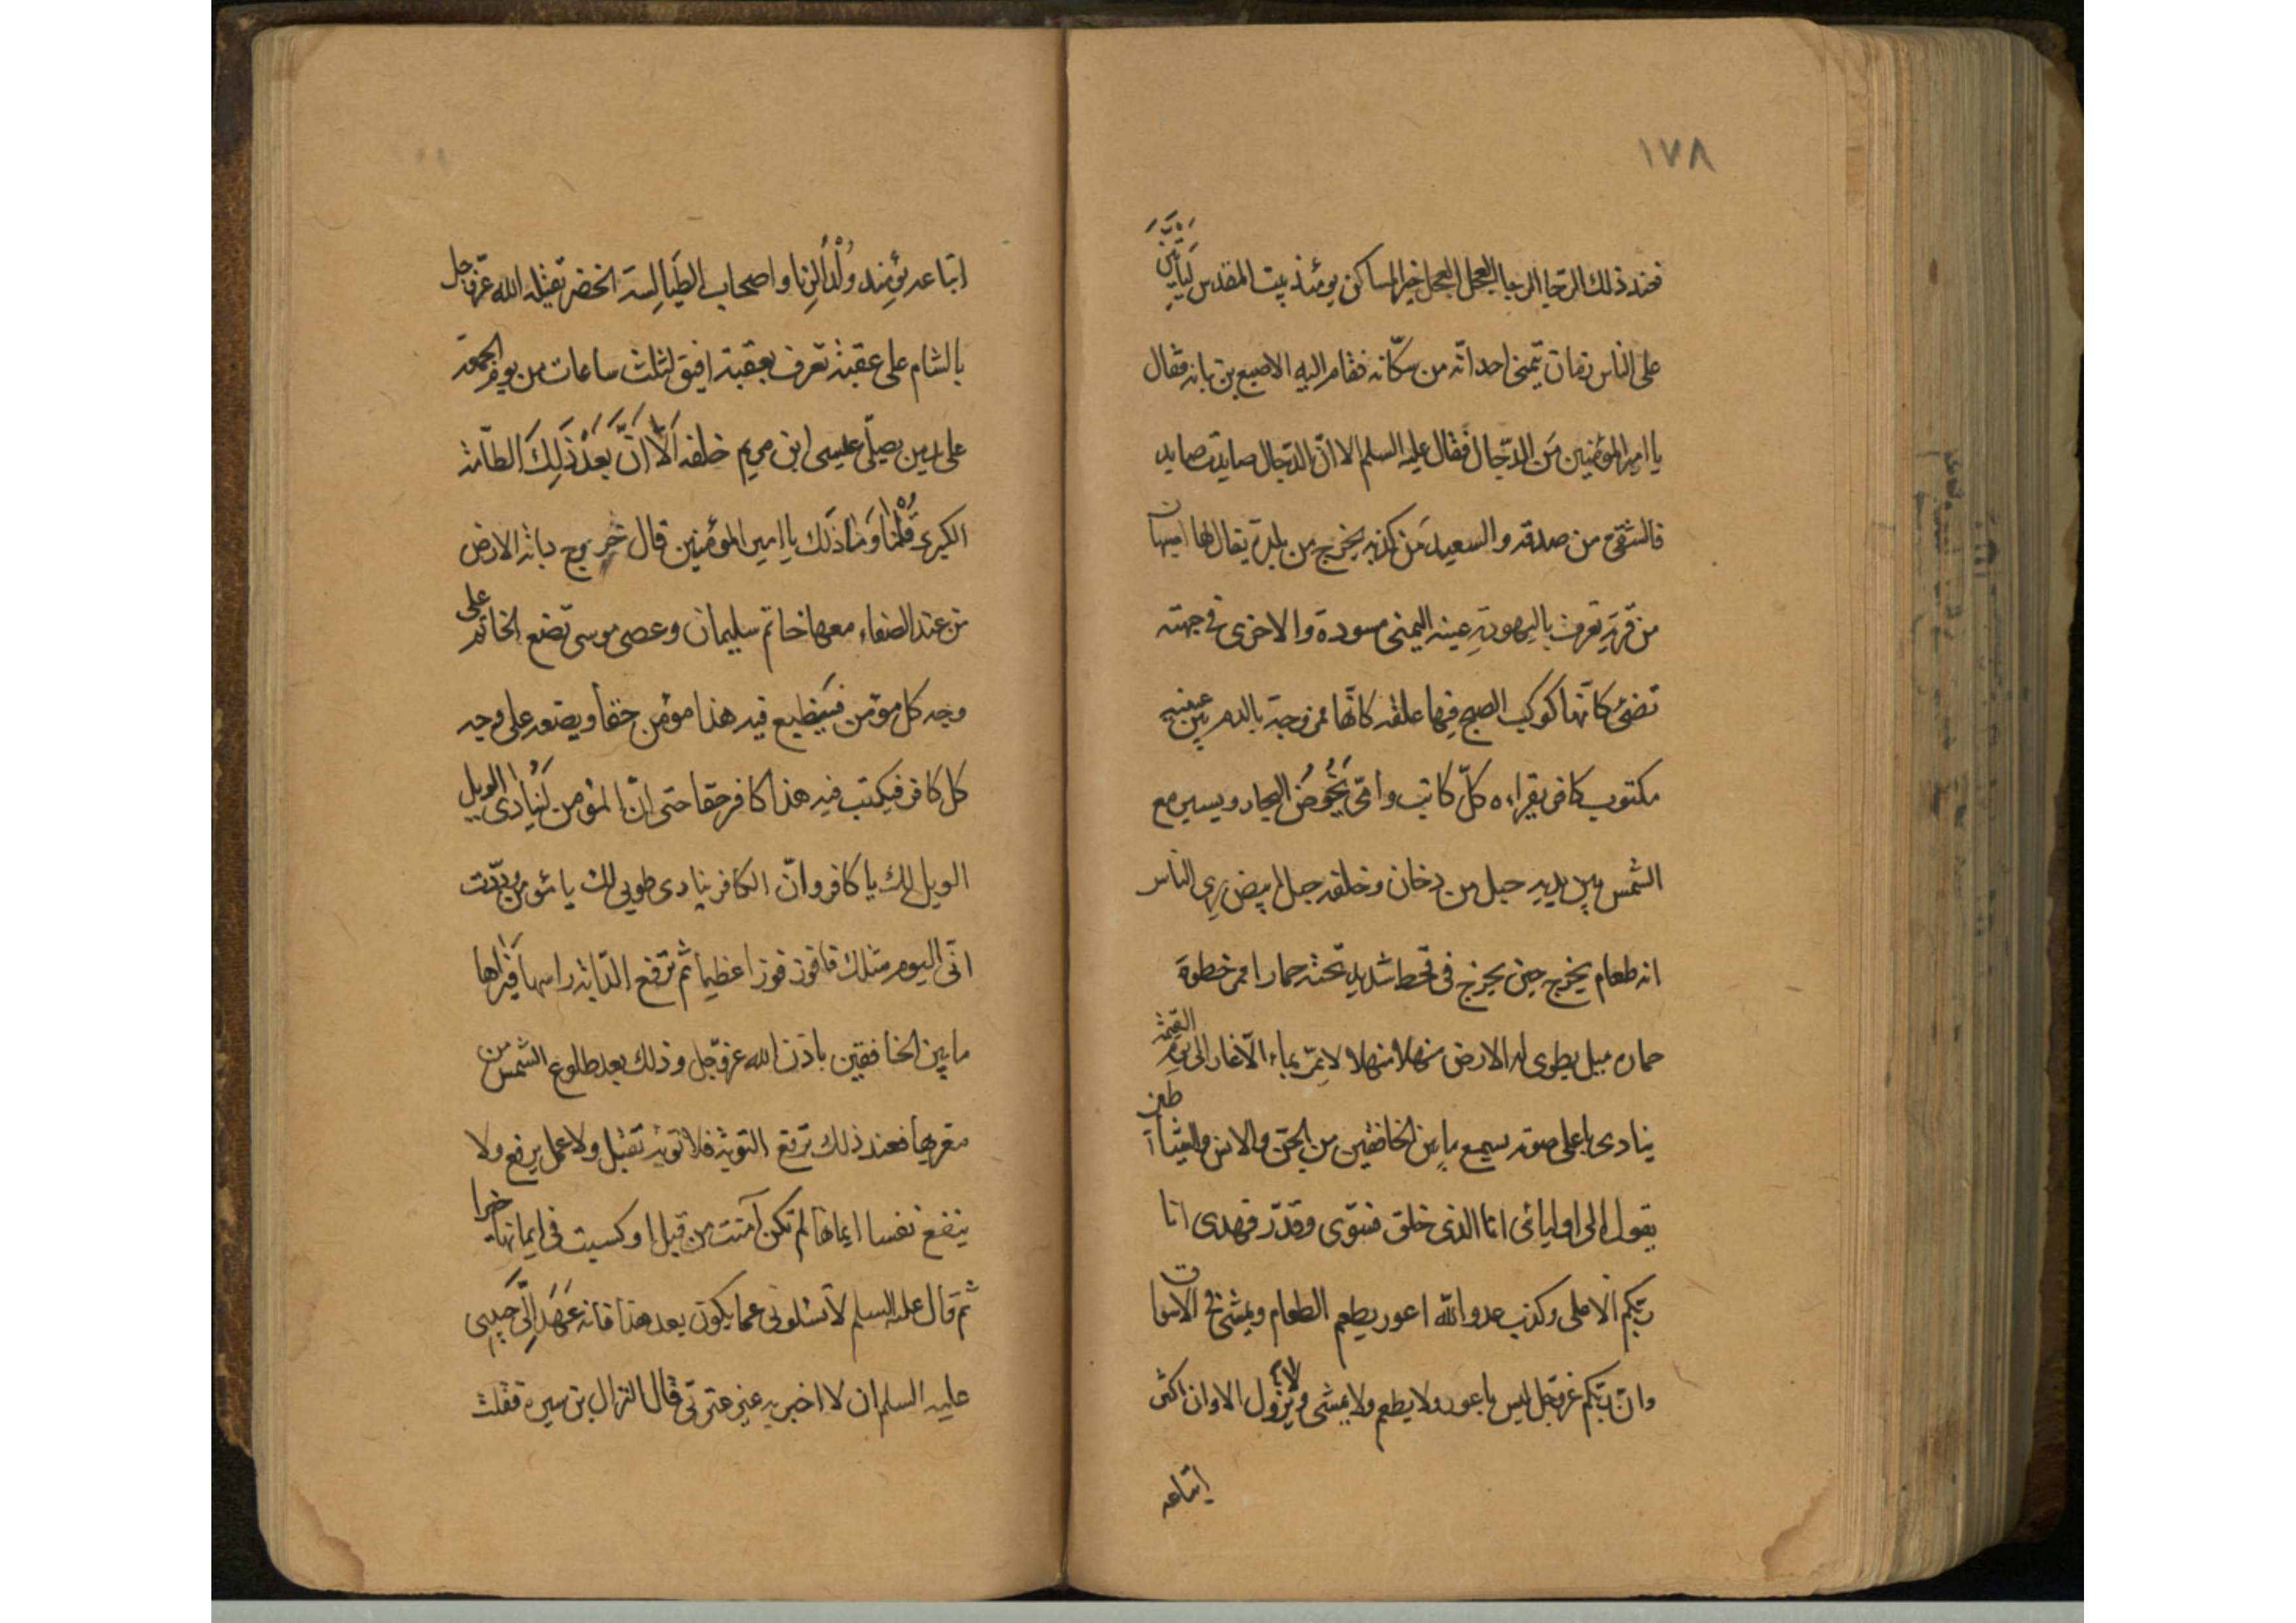 ١٧٨
فعند ذلك الوحا الوحا العجل العجل خير المساكن يومئذ بيت المقدس لَيَأتِيَنَّ
على الناس زمان يتمنى احد انّه من سكّانه فقام اليه الاصبع بن نباته فقال
يا امير المؤمنين مَن الدّجال فقال عليه السلم الا انّ الدّجال صايد بن صايد
فالشقى من صدقه والسعيد مَن كذبه يخرج من بلدة يقال لها اصبهان
من قرية تعرف باليهودية عينه اليمنى مسودة والاخرى فى جبهته
تضئ كانّها كوكب الصبح فيها علقه كانّها ممزوجة بالدم بين عينيه
مكتوب كافر يقراءه كلّ كاتب وامّى يَخُوضُ البحار ويسير مع
الشمس بين يديه جبل من دخان وخلفه جبل ابيض يرى الناس
انه طعام يخرج حين يخرج فى قحط شديد تحته حمار اقمر خطوة
حماره ميل يطوى له الارض منهلا منهلا لا يمرّ بماء الّا غار الى يوم القيمة
ينادى باعلى صوته يسمع ما بين الخافقين من الجنّ والانس والشياطين
يقول الى اوليائى انا الذى خلق فسوّى وقدّر فهدى انا
ربّكم الاعلى وكذب عدو اللّه اعور يطعم الطعام ويمشى فى الاسواق
وانّ ربّكم عزوجل ليس باعور ولا يطعم ولا يمشى ولا يزول الا وان اكثر
اتباعه
اتباعه يومئِذ وُلْدُ الزِنا واصحاب الطَيالِسة الخضر يقتله الله عزّوجل
بالشام على عقبة تعرف بعقبة افيق لثلث ساعات من يوم الجمعة
على يدين يصلّى عيسى ابن مريم خلفه اَلَا اِنَّ بَعْدَ ذَلِكَ الطّامّة
الكبرى قُلْنا وَما ذَلك يا امير المؤمنين قال خروج دابة الارض
من عند الصفاء معها خاتم سليمان وعصى موسى تضع الخاتم على
وجه كل مؤمن فيَنطبع فيه هذا مؤمن حقا ويضعه على وجه
كل كافر فيكتب فيه هذا كافر حقا حتى انّ المؤمن لَيُنادى الويل
الويل لك يا كافر وانّ الكافر ينادى طوبى لك يا مؤمن وددت
انّى اليوم مثلك فافوز فوزا عظيما ثم ترفع الدّابة راسها فيَراها
ما بين الخافقين باذن الله عزوجل وذلك بعد طلوع الشمس من
مغربها فعند ذلك ترفع التوبة فلا توبة تقبل ولا عمل يرفع ولا
ينفع نفسا ايمانها لم تكن آمنت من قبل او كسبت فى ايمانها خيرا
ثم قال عليه السلم لا تسئلونى عما يكون بعد هذا فانه عَهَدَ اِلَىَّ حَبيبى
عليه السلم ان لا اخبر به غير عترتى قال النزال بن سبره فقلت